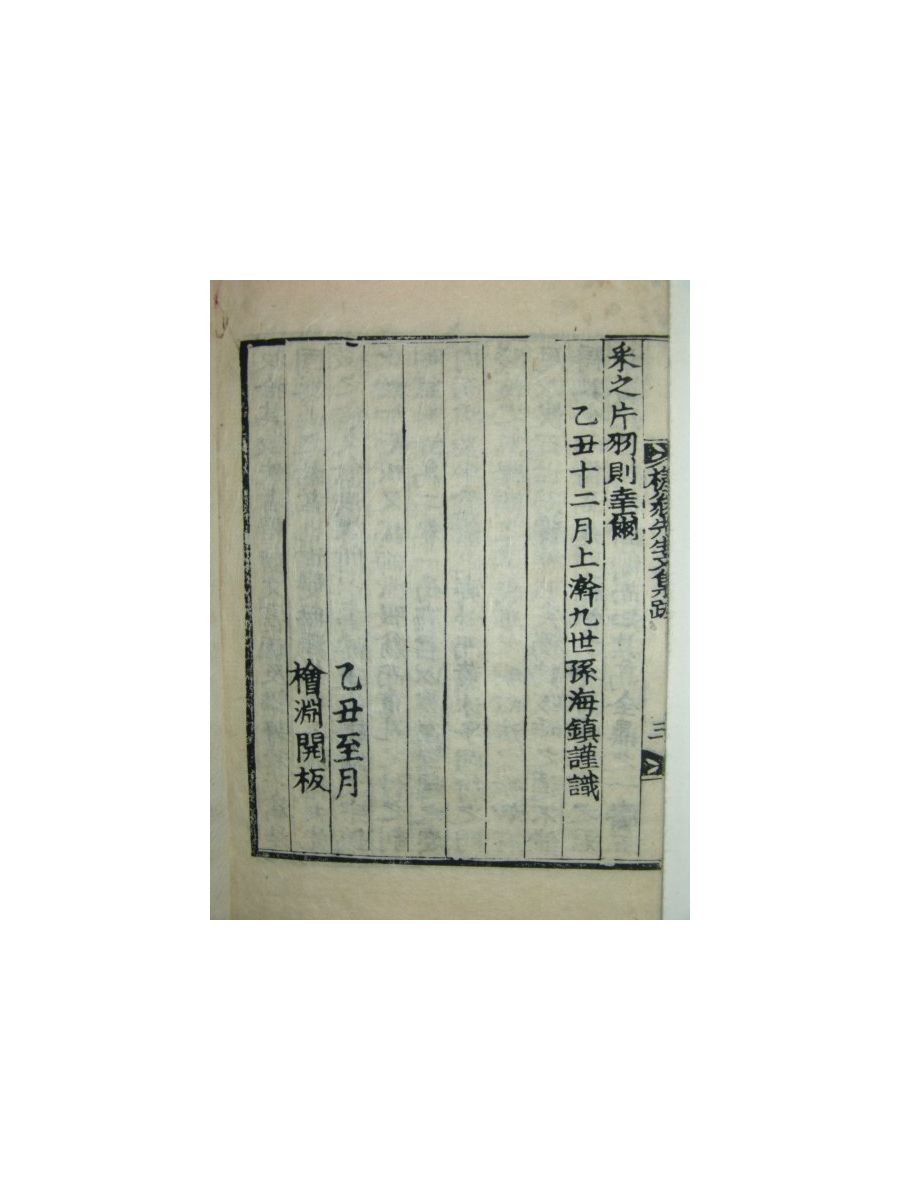 先生文集跋
三
采之片羽則幸爾
乙丑十二月上澣九世孫海鎭謹識
乙丑至月
檜淵開板